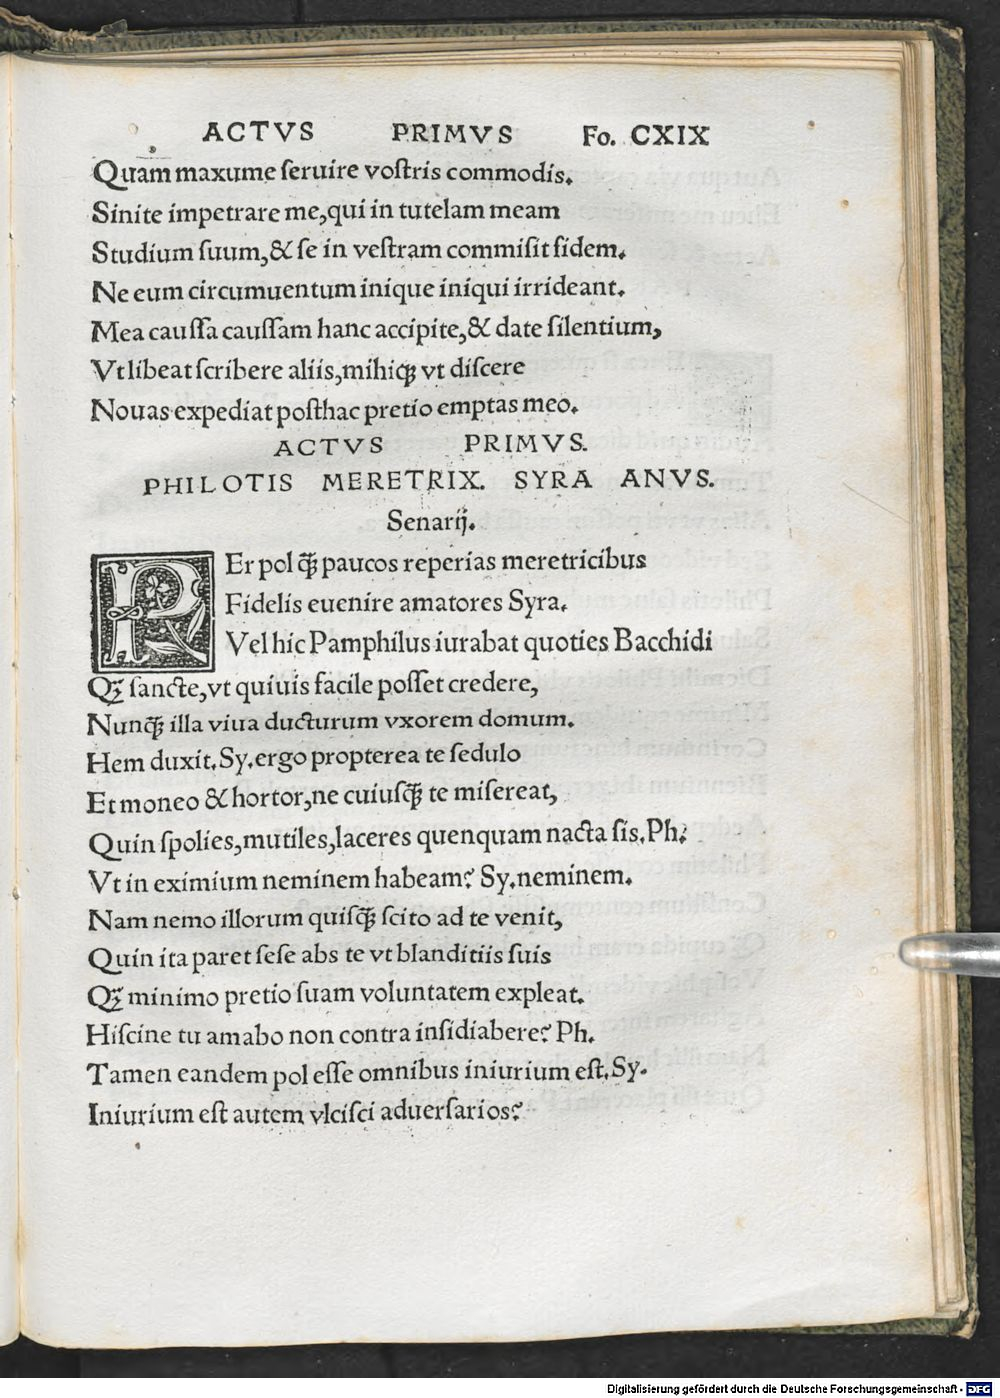 ACTVS PRIMVS Fo. CXIX
Quam maxume ſeruire voſtris commodis.
Sinite impetrare me, qui in tutelam meam
Studium ſuum, & ſe in veſtram commiſit fidem.
Ne eum circumuentum inique iniqui irrideant.
Mea cauſſa cauſſam hanc accipite, & date ſilentium,
Vt libeat ſcribere aliis, mihiqꝫ vt diſcere
Nouas expediat poſthac pretio emptas meo.
ACTVS PRIMVS.
PHILOTIS MERETRIX. SYRA ANVS.
Senarij.
REr pol q̃ꝫ paucos reperias meretricibus
Fidelis euenire amatores Syra.
Vel hic Pamphilus iurabat quoties Bacchidi
Qꝫ ſancte, vt quiuis facile poſſet credere,
Nunq̃ꝫ illa viua ducturum vxorem domum.
Hem duxit. Sy. ergo propterea te ſedulo
Et moneo & hortor, ne cuiuſq̃ꝫ te miſereat,
Quin ſpolies, mutiles, laceres quenquam nacta ſis. Ph:
Vt in eximium neminem habeam? Sy. neminem.
Nam nemo illorum quiſq̃ꝫ ſcito ad te venit,
Quin ita paret ſeſe abs te vt blanditiis ſuis
Qꝫ minimo pretio ſuam voluntatem expleat.
Hiſcine tu amabo non contra inſidiabere? Ph.
Tamen eandem pol eſſe omnibus iniurium eſt. Sy.
Iniurium eſt autem vlciſci aduerſarios?
Digitalisierung gefördert durch die Deutsche Forschungsgemeinschaft - DFG